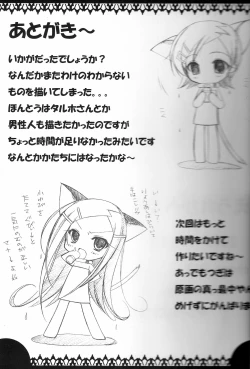 あとがき～
いかがだったでしょうか？
なんだかまたわけのわからない
ものを描いてしまった。。。
ほんとうはタルホさんとか
男性人も描きたかったのですが
ちょっと時間が足りなかったみたいです
なんとかかたちにはなったかな～
次回はもっと
時間をかけて
作りたいですね～
あってもつぎは
原画の真っ最中やん
めげずにがんばりま